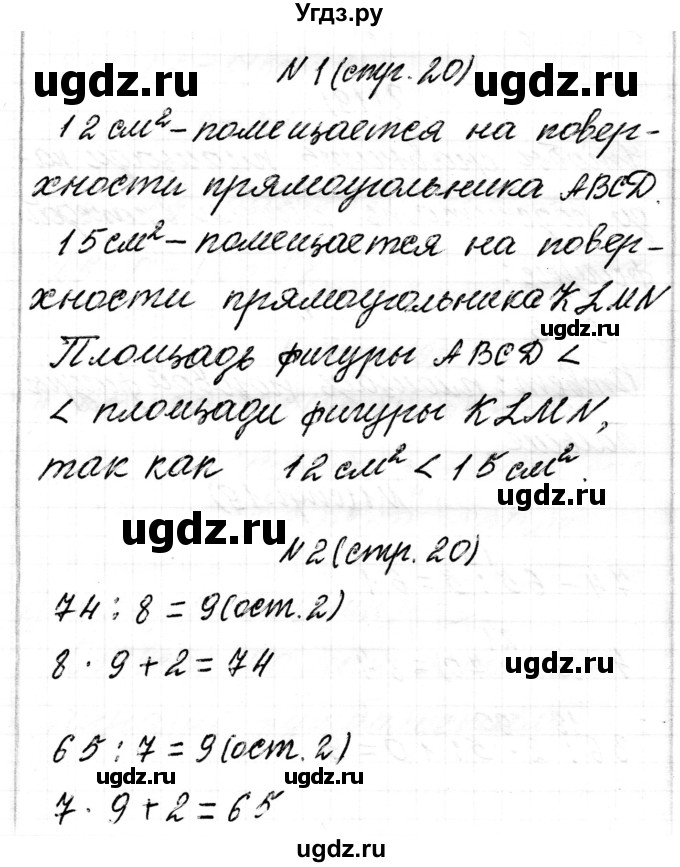 Угдз.ру
N 1 (стр. 20)
ugdz.ru ugdz.ru
12 см² - помещается на повер-
хности прямоугольника ABCD.
15 см² - помещается на повер-
хности прямоугольника KLMN
ugdz.ru
Площадь фигуры ABCD <
< площади фигуры KLMN,
так как 12 см² < 15 см².
ugdz.ru
ugdz.ru
N 2 (стр. 20)
74 : 8 = 9 (ост. 2)
8 · 9 + 2 = 74
ugdz.ru
65 : 7 = 9 (ост. 2)
ugdz.ru ugdz.ru
7 · 9 + 2 = 65
ugdz.ru